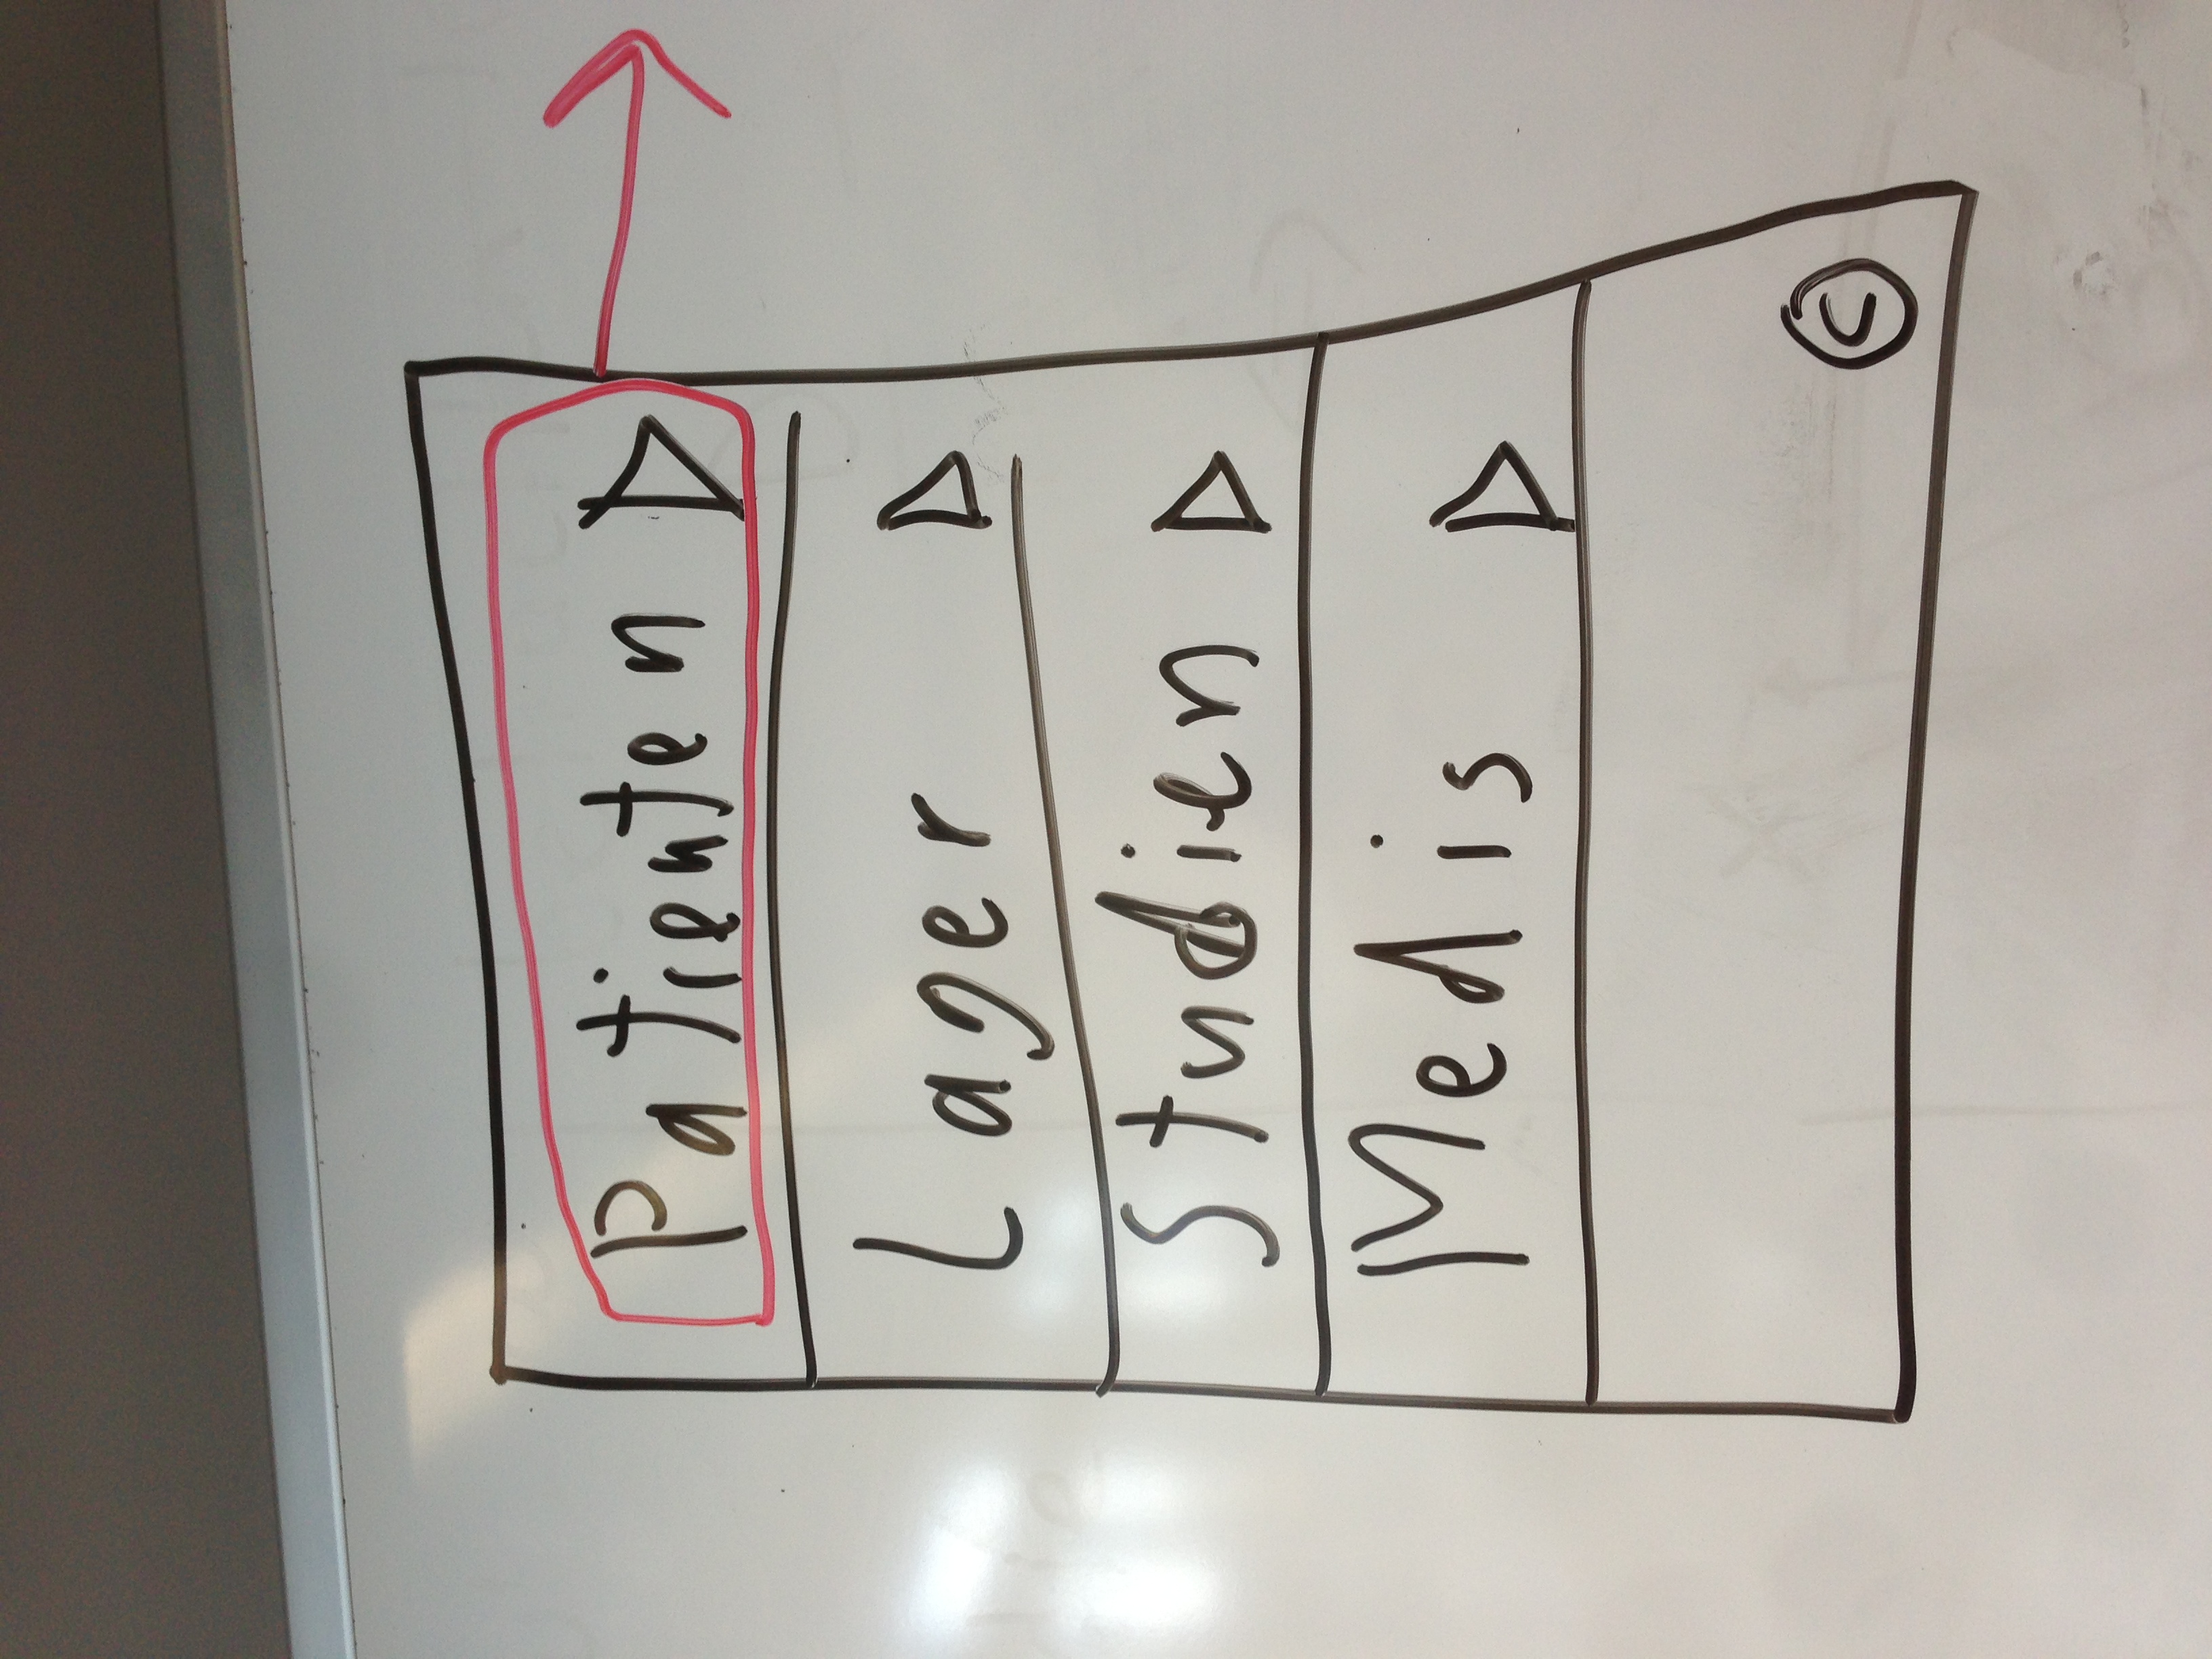 Patienten ▷
Lager ▷
Studien ▷
Medis ▷
©